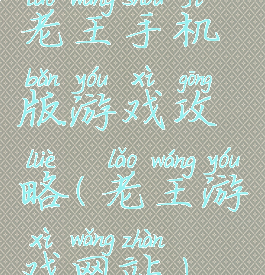 lǎo wáng shǒu jī
老王手机
bǎn yóu xì gōng
版游戏攻
lüè lǎo wáng yóu
略(老王游
xì wǎng zhàn
戏网站)